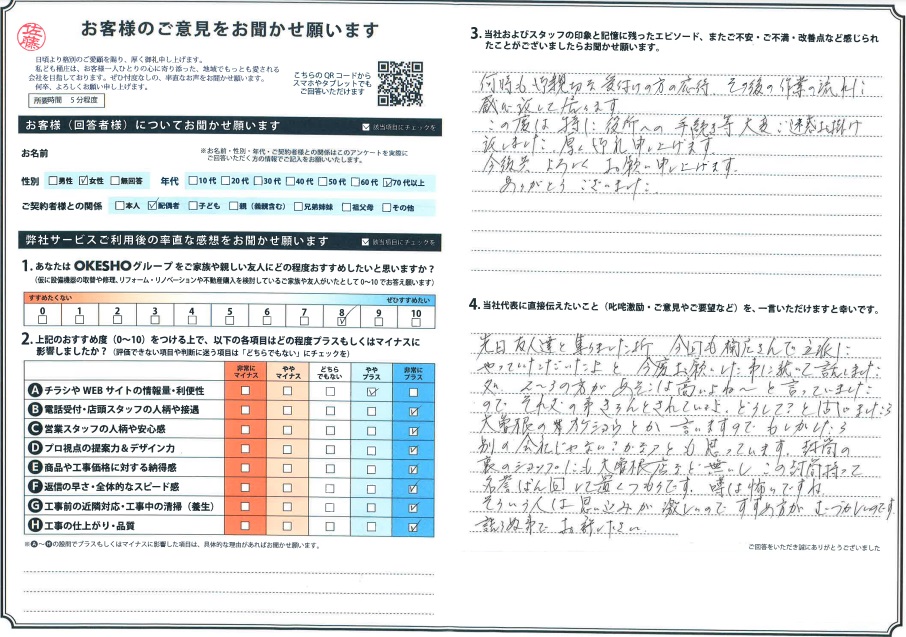 佐藤
お客様のご意見をお聞かせ願います
日頃より格別のご愛顧を賜り、厚く御礼申し上げます。
私ども桶庄は、お客様一人ひとりの心に寄り添った、地域でもっとも愛される
会社を目指しております。ぜひ忖度なしの、率直なお声をお聞かせ願います。
何卒、よろしくお願い申し上げます。
所要時間 5分程度
こちらのQRコードから
スマホやタブレットでも
ご回答いただけます
お客様（回答者様）についてお聞かせ願います
該当項目にチェックを
お名前
※お名前・性別・年代・ご契約者様との関係はこのアンケートを実際に
ご回答いただく方の情報でご記入をお願いいたします。
性別 男性 女性 無回答 年代 10代 20代 30代 40代 50代 60代 70代以上
ご契約者様との関係 本人 配偶者 子ども 親（義親含む） 兄弟姉妹 祖父母 その他
弊社サービスご利用後の率直な感想をお聞かせ願います
該当項目にチェックを
1. あなたは OKESHOグループ をご家族や親しい友人にどの程度おすすめしたいと思いますか？
（仮に設備機器の取替や修理、リフォーム・リノベーションや不動産購入を検討しているご家族や友人がいたとして 0～10 でお答え願います）
すすめたくない ぜひすすめたい
0 1 2 3 4 5 6 7 8 9 10
2. 上記のおすすめ度（0～10）をつける上で、以下の各項目はどの程度プラスもしくはマイナスに
影響しましたか？（評価できない項目や判断に迷う項目は「どちらでもない」にチェックを）
非常に マイナス
やや マイナス
どちら でもない
やや プラス
非常に プラス
A チラシや WEB サイトの情報量・利便性
B 電話受付・店頭スタッフの人柄や接遇
C 営業スタッフの人柄や安心感
D プロ視点の提案力＆デザイン力
E 商品や工事価格に対する納得感
F 返信の早さ・全体的なスピード感
G 工事前の近隣対応・工事中の清掃（養生）
H 工事の仕上がり・品質
※A～Hの設問でプラスもしくはマイナスに影響した項目は、具体的な理由があればお聞かせ願います。
3. 当社およびスタッフの印象と記憶に残ったエピソード、またご不安・ご不満・改善点など感じられ
たことがございましたらお聞かせ願います。
何時も御親切な受付けの方の応待 その後の作業の流れに
感心致して居ります
この度は特に役所への手続き等大変ご迷惑お掛け
致しました 厚く御礼申し上げます
今後共よろしくお願い申し上げます。
ありがとうございました
4. 当社代表に直接伝えたいこと（叱咤激励・ご意見やご要望など）を、一言いただけますと幸いです。
先日友人達と集りました所 今回も桶庄さんで立派に
やっていただいたよと今度お願いした事に就って話しました
2～3の方があそこは高いよね～と言っていました
ので それどの
大曽根の
別の会社じゃないかなァとも思っています 封筒の
裏のショップにも大曽根店など無いし この封筒持って
つもりです 噂は怖いですね
そういう人は思い込みが激しいので すすめ方がむづかしいのです
ご回答をいただき誠にありがとうございました